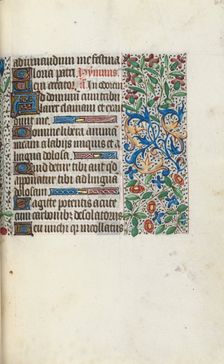 adiuuandum me festina
Gloria patri Hymnus
eni creator An In domi
Ad dominū cum tribu
larer clamaui et exau
Domine libera animā
meam a labijs iniquis et a
lingua dolosa
Quid detur tibi aut qd
apponatur tibi ad lingua
dolosam
Sagitte potentis acute
cum carbonibꝫ desolatorijs
Heu michi qr incolatus